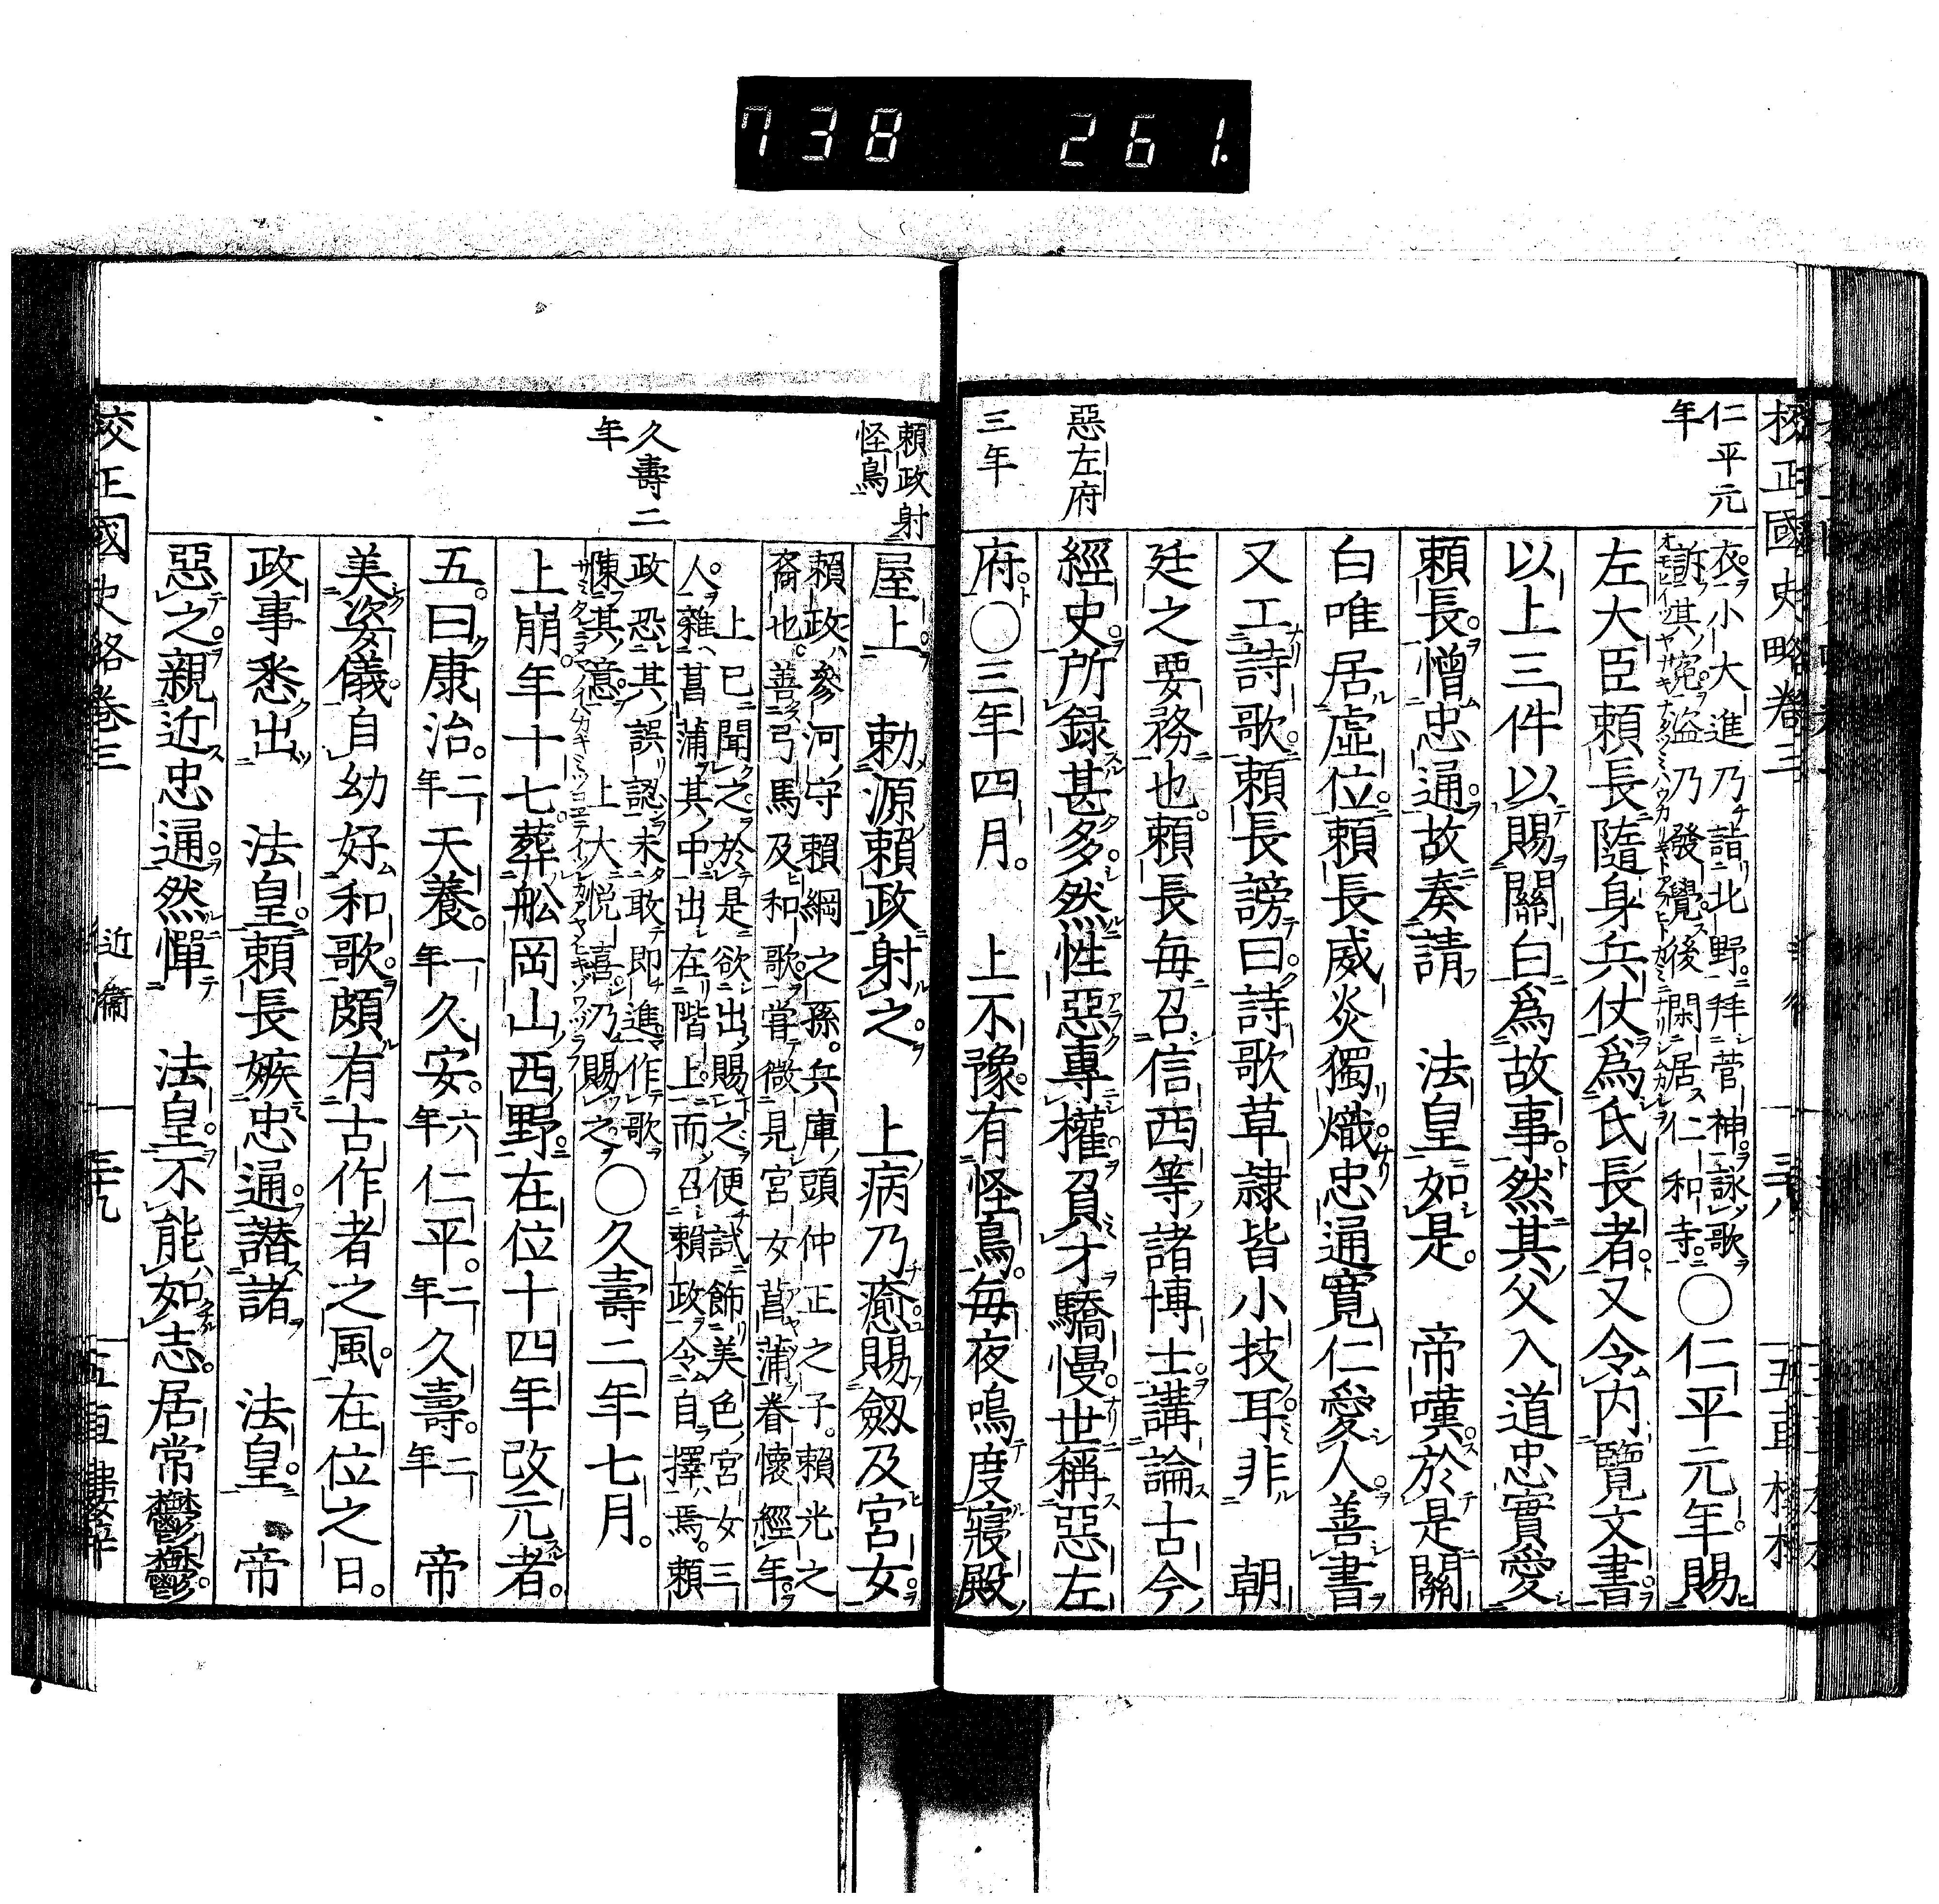 738 261.
校正國史略卷三
三十八
仁平元
年
惡左府
三年
衣小大進乃詣北野拜菅神詠歌
訴其冤盗乃發覺後閑居仁和寺
〇仁平元年。賜
左大臣賴長隨身兵仗爲氏長者又令内覽文書
以上三件以賜關白爲故事然其父入道忠實愛
賴長。憎忠通。故奏請 法皇如是。 帝嘆於是關
白唯居虛位。賴長威炎獨熾。忠通寛仁愛人善書
又工詩歌。賴長謗曰詩歌草隸皆小技耳。非 朝
廷之要務也。賴長每召信西等諸博士講論古今
經史。所録甚多。然性惡專權負才驕慢。世稱惡左
府。〇三年四月。 上不豫。有怪鳥。每夜鳴度寢殿
賴政射
怪鳥
久壽二
年
屋上 勅源賴政射之。 上病乃癒。賜劔及宮女
賴政參河守賴綱之孫。兵庫頭仲正之子。賴光之
裔也。善弓馬及和歌。嘗微見宮女菖蒲眷懷經年
上已聞之。於是欲出賜之便試飾美色宮女三
人。雜菖蒲其中出在階上而召賴政令自擇焉。賴
政恐其誤認未敢即進作歌
陳其意 上大悦喜乃賜之
〇久壽二年七月。
上崩。年十七。葬舩岡山西野。在位十四年改元者。
五。曰康治。二年天養。一年久安。六年仁平。二年久壽。二年 帝
美姿儀。自幼好和歌。頗有古作者之風。在位之日。
政事悉出 法皇。賴長嫉忠通。譖諸 法皇。 帝
惡之。親近忠通。然憚 法皇。不能如志。居常鬱鬱。
校正國史略卷三
近衞
三十九